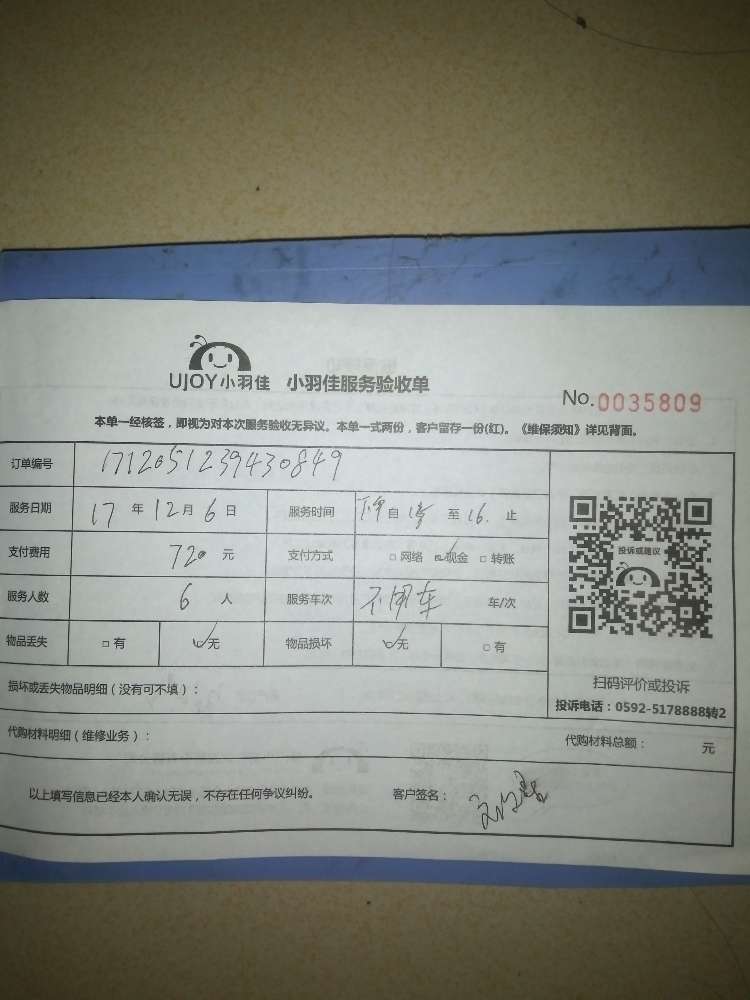 UJOY小羽佳 小羽佳服务验收单
No.0035809
本单一经核签，即视为对本次服务验收无异议。本单一式两份，客户留存一份(红)。《维保须知》详见背面。
订单编号 1712051239430849
服务日期 17 年 12 月 6 日 服务时间 下午 自 至 16. 止
支付费用 720 元 支付方式 □网络 ☑现金 □转账
服务人数 6 人 服务车次 不用车 车/次
物品丢失 □有 ☑无 物品损坏 ☑无 □有
投诉或建议
扫码评价或投诉
投诉电话：0592-5178888转2
损坏或丢失物品明细（没有可不填）：
代购材料明细（维修业务）： 代购材料总额： 元
以上填写信息已经本人确认无误，不存在任何争议纠纷。 客户签名：